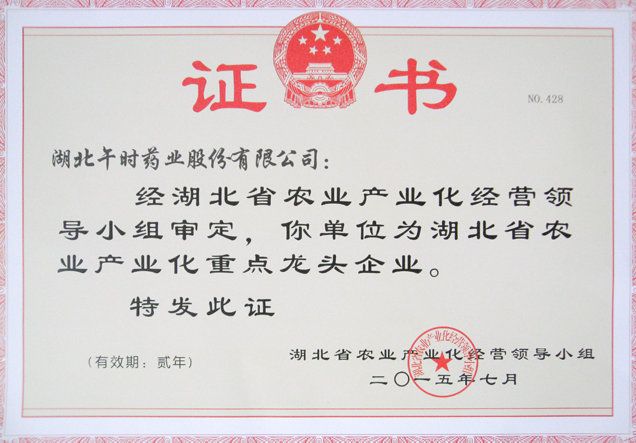 证书
NO. 428
湖北午时药业股份有限公司：
经湖北省农业产业化经营领
导小组审定，你单位为湖北省农
业产业化重点龙头企业。
特发此证
（有效期：贰年）
湖北省农业产业化经营领导小组
二〇一五年七月
湖北省农业产业化经营领导小组